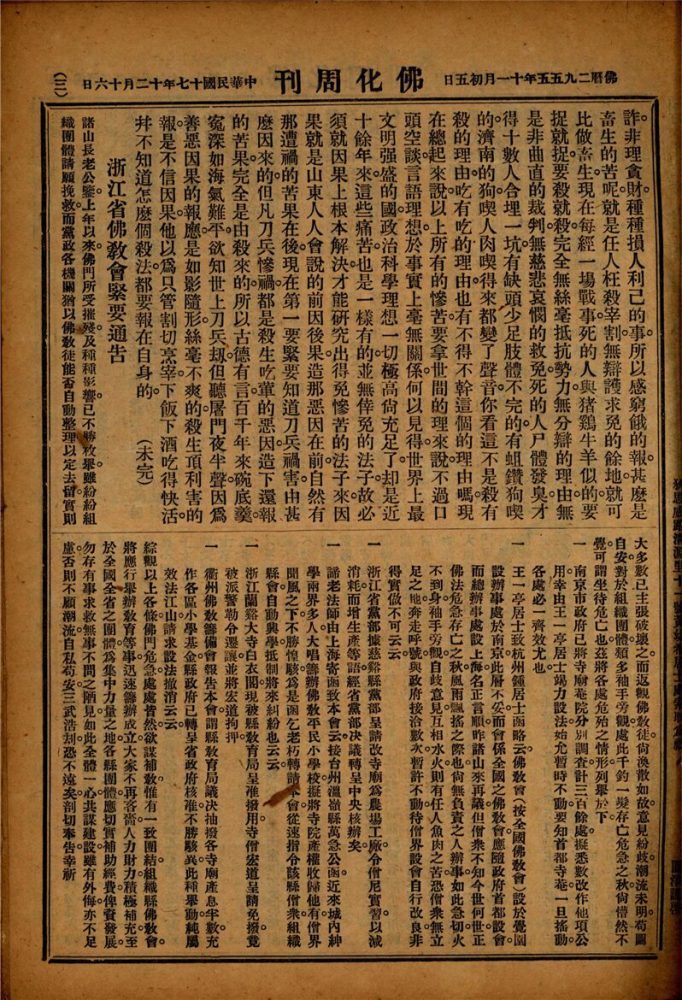 佛曆二九五五年十一月初五日
佛化周刊
中華民國十七年十二月十六日
(三)
詐。非理貪財。種種損人利己的事。所以感窮餓的報。甚麼是
畜生的苦呢。就是任人枉殺宰割。無辯護求免的餘地。就可
比做畜生。現在每經一場戰事。死的人與猪鷄牛羊似的。要
捉就捉。要殺就殺。完全無絲毫抵抗勢力。無分辯的理由。無
是非曲直的裁判。無慈悲哀憫的救免。死的人尸體發臭。才
得十數人合埋一坑。有缺頭少足肢體不完的。有蛆鑽狗喫
的。濟南的狗喫人肉。喫得來都變了聲音。你看這不是殺有
殺的理由。吃有吃的理由。也有不得不幹這個的理由嗎。現
在總起來說。以上所有的慘苦。要拿世間的理來說。不過口
頭空談。言語理想。於事實上毫無關係。何以見得。世界上最
文明强盛的國。政治科學理想。一切極高尙充足了。却是近
十餘年來。這些痛苦。也是一樣有的。並無倖免的法子。故必
須就因果上根本解决。才能研究出得免慘苦的法子來。因
果就是山東人人會說的前因後果。造那惡因在前。自然有
那遭禍的苦果在後。現在第一要緊要知道刀兵禍害由甚
麼因來的。但凡刀兵慘禍。都是殺生吃葷的惡因造下。還報
的苦果。完全是由殺來的。所以古德有言。百千年來碗底羹。
寃深如海氣難平。欲知世上刀兵刼。但聽屠門夜半聲。因爲
善惡因果的報應。是如影隨形。絲毫不爽的。殺生頂利害的
報。是不信因果。他以爲只管割切烹宰。下飯下酒。吃得快活。
幷不知道怎麽個殺法。都要報在自身的。（未完）
浙江省佛敎會緊要通告
諸山長老公鑒。上年以來。佛門所受摧殘。及種種影響。已不勝枚舉。雖紛紛組
織團體。請願挽救。而黨政各機關。猶以佛敎徒能否自動整理。以定去留。實則
大多數已主張破壞之。而返觀佛敎徒尙渙散如故。意見紛歧。潮流未明。苟圖
自安。對於組織團體。類多袖手旁觀。處此千鈞一髮存亡危急之秋。尙懵然不
覺。可謂坐待危亡也。茲將各處危殆之情形。列舉於下。
一 南京市政府。已將寺廟菴院。分別調查。計三百餘處。擬悉數改作他項公
用。幸由王一亭居士竭力設法。始允暫時不動。要知首都寺菴。一旦搖動。
各處必一齊效尤也。
一 王一亭居士致杭州鍾居士函略云。佛敎會（按全國佛敎會）設於覺園
設辦事處於南京此層不妥。而會係全國之佛敎會。應隨政府首都設會。
而總辦事處設上海。名正言順。昨諸山來再議。但僧衆不知今世何世。正
佛法危急存亡之秋。風雨飄搖之際也。尙無負責之人辦事。如此急切。火
不到身。袖手旁觀。自歧意見。互相水火。則有任人魚肉之苦。恐僧衆無立
足之地。奔走呼號。與政府接洽數次。暫許不動。待僧界設會自行改良。非
得實做不可云云。
一 浙江省黨部據慈谿縣黨部呈。請改寺廟爲農場工廠。令僧尼實習。以減
消耗而增生產等語。經省黨部决議。轉呈中央核辦矣。
一 諦老法師由上海寄函致本會云。接台州溫嶺縣萬急公函。近來城內紳
學兩界多人。大唱籌辦佛敎平民小學校。擬將寺院產權收歸他有。僧界
聞風之下。不勝惶駭。爲是函乞老朽轉請本會。從速指令該縣僧衆組織
縣會。自動興學。抵制將來糾紛也云云。
一 浙江蘭谿大寺白衣閣。現被縣敎育局呈准撥用。寺僧宏道呈請免撥。竟
被派警勒令遷讓。並將宏道拘押。
一 衢州佛敎籌備會報告本會。謂縣敎育局議决抽撥各寺廟產息半數。充
作各區小學基金。縣政府已轉呈省政府核准。不勝駭異。此種舉動。純屬
效法江山。請求設法撤消云云。
綜觀以上各條。佛門危急。處處皆然。欲謀補救。惟有一致團結。組織縣佛敎會。
將應行舉辦敎育等事。迅速籌辦成立。大家不再吝嗇人力財力。積極補充。至
於全國全省之團體。爲集中力量之地。各縣團體。應切實補助經費。俾資發展。
勿存有事求救。無事不問之陋見。如此全體一心。共謀建設。雖有外侮。亦不足
慮。否則不顧潮流。自私苟安。三武浩刼。恐不遠矣。剴切奉告。幸祈